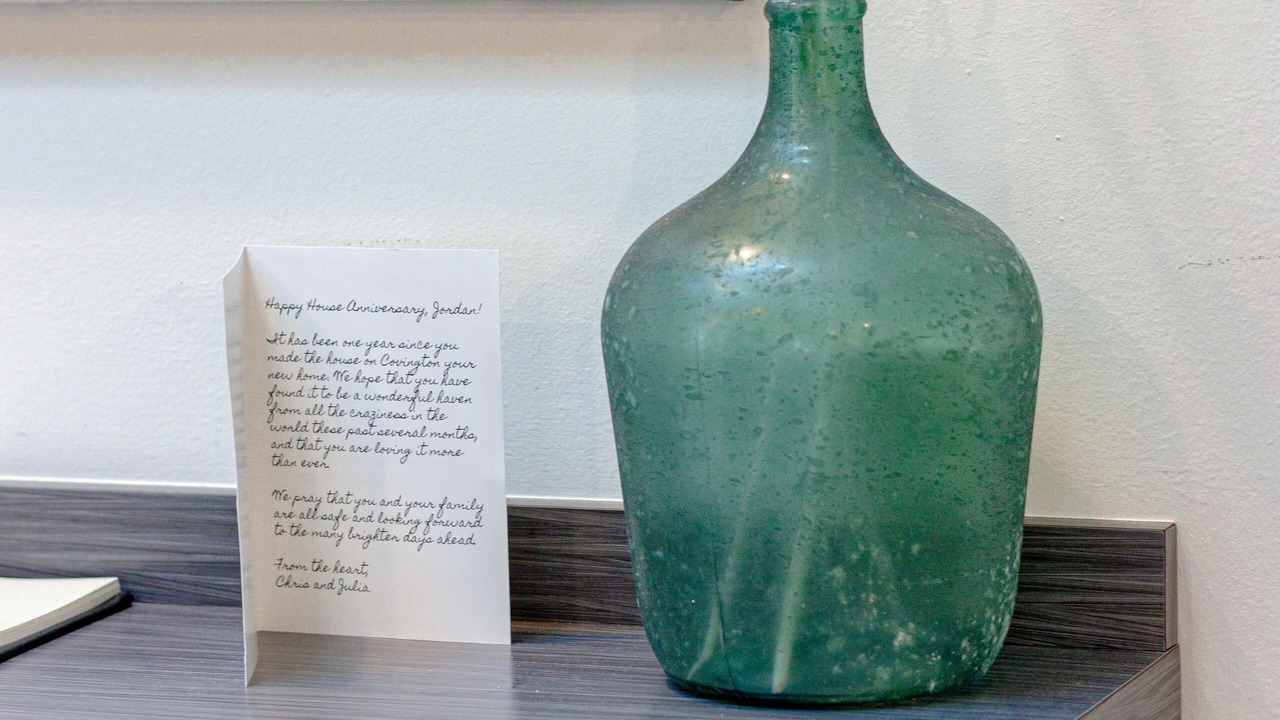 Happy House Anniversary, Jordan!
It has been one year since you
made the house on Covington your
new home. We hope that you have
found it to be a wonderful haven
from all the craziness in the
world these past several months,
and that you are loving it more
than ever.
We pray that you and your family
are all safe and looking forward
to the many brighter days ahead.
From the heart,
Chris and Julia